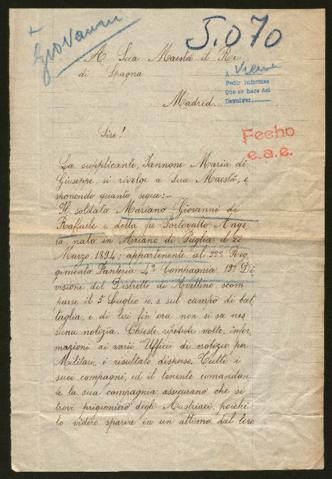 + Giovanni
5.070
A Sua Maestà il Re
di Spagna
a Viena
Pedir informes
Que se hace del
Devolver
Madrid.
Sire!
Fecho
e.a.e.
La supplicante, Iannone Maria di
Giuseppe, si rivolge a Sua Maestà, e-
sponendo quanto segue:-
Il soldato Mariano Giovanni di
Raffaele e della fu Portovalto Ange
la, nato in Ariano di Puglia il 22
Marzo 1894; appartenente al 222º Reg
gimento Fanteria 4ª Compagnia 19ª Di
visione del Distretto di Avellino scom
parse il 5 Luglio u. s. sul campo di bat
taglia, e di lui fin'ora non si sa nes
suna notizia. Chieste, ripetute volte, infor
mazioni ai varii Uffici di notizie per
Militari, i risultati dispersi. Tutti i
suoi compagni, ed il tenente comandan
te la sua compagnia assicurano che si
trovi prigioniero degli Austriaci, poichè
lo videro sparire in un attimo dal loro